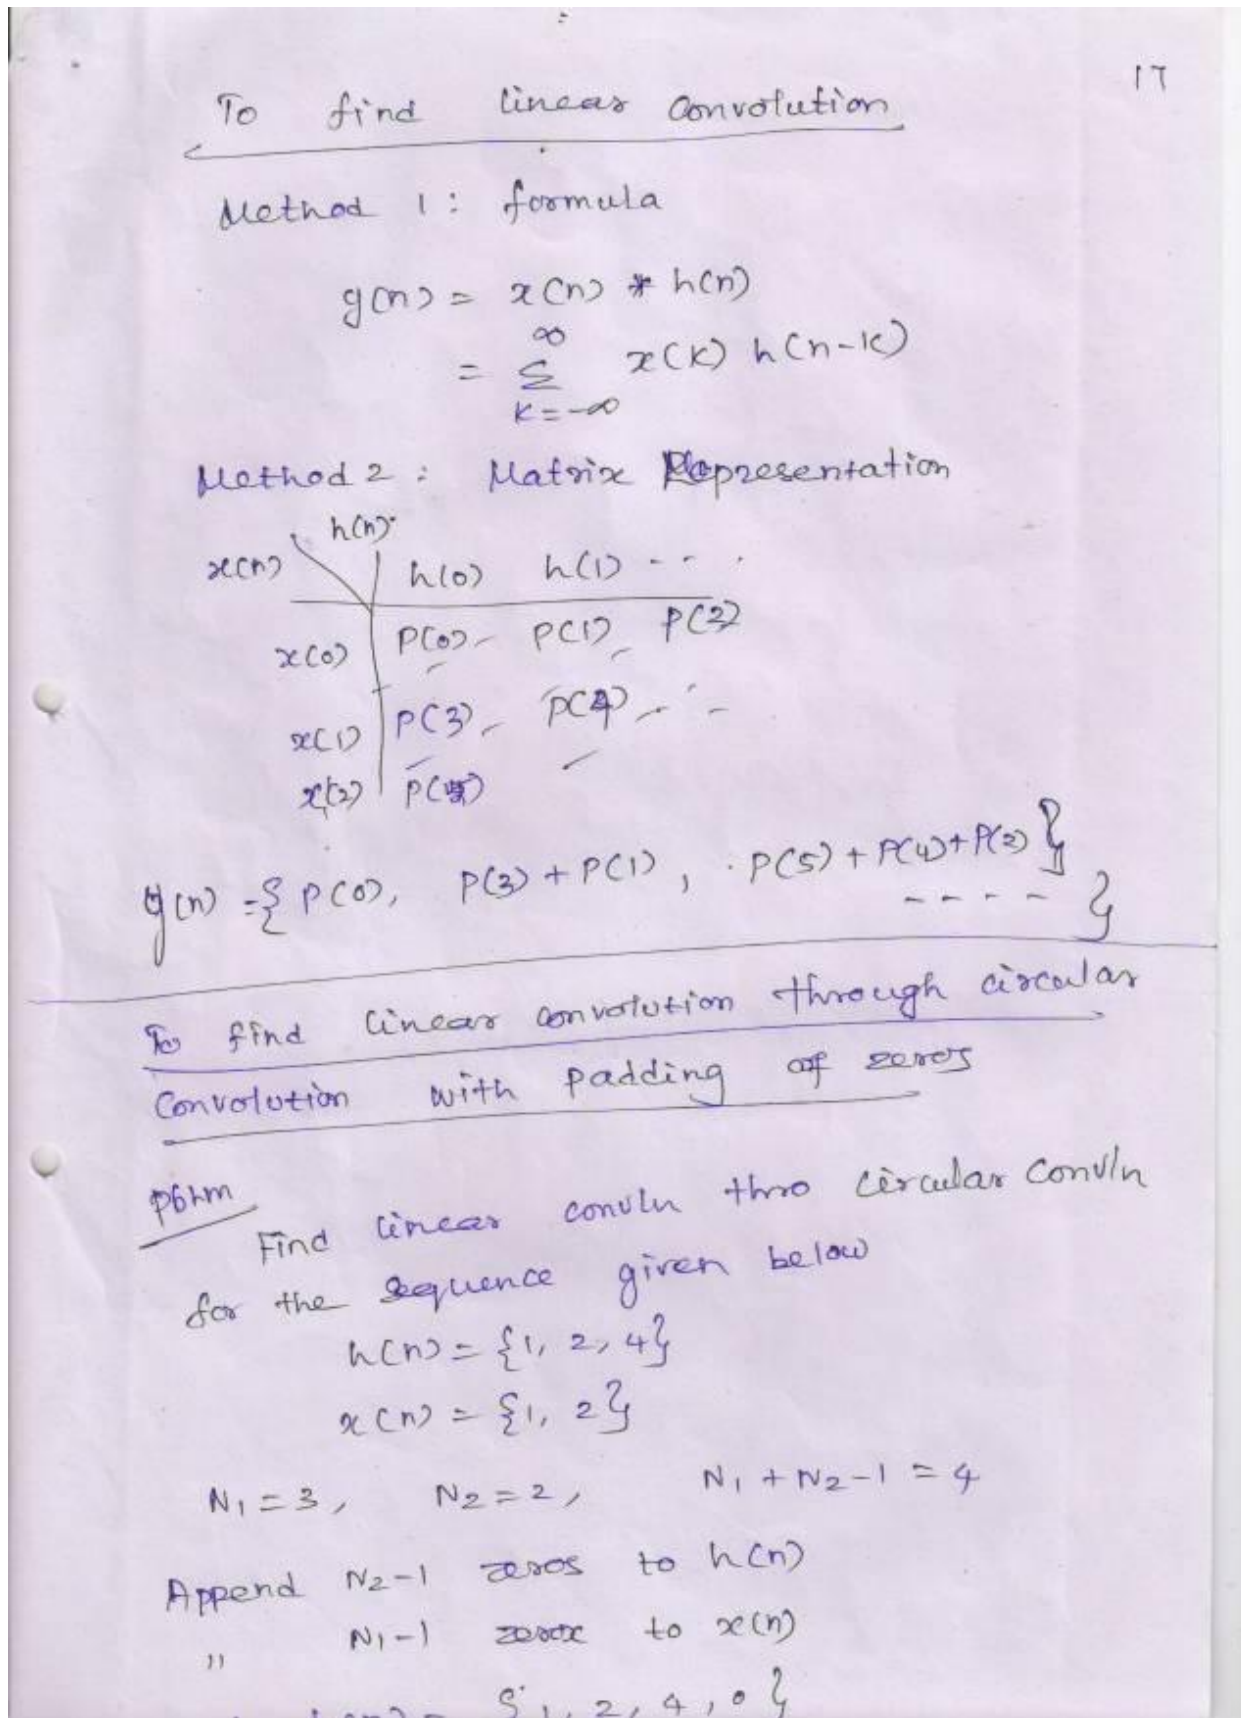 17
To find linear convolution
Method 1: formula
y(n) = x(n) * h(n)
= ∞ Σ k=-∞ x(k) h(n-k)
Method 2: Matrix Representation
h(n)
x(n) h(0) h(1) ---.
x(0) P(0) P(1) P(2)
x(1) P(3) P(4)
x(2) P(5)
y(n) = { P(0), P(3) + P(1), P(5) + P(4) + P(2) }
---- }
To find linear convolution through circular
convolution with padding of zeros
pblm
Find linear convln thro circular convln
for the sequence given below
h(n) = {1, 2, 4}
x(n) = {1, 2}
N1 = 3, N2 = 2, N1 + N2 - 1 = 4
Append N2-1 zeros to h(n)
" N1-1 zeros to x(n)
{1, 2, 4, 0}